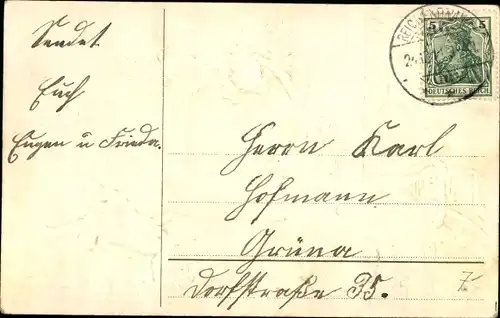 Sendet
Euch
Eugen u Frieda.
5 5
DEUTSCHES REICH
Herrn Karl
Hofmann
Grüna
Dorfstraße 35.
7